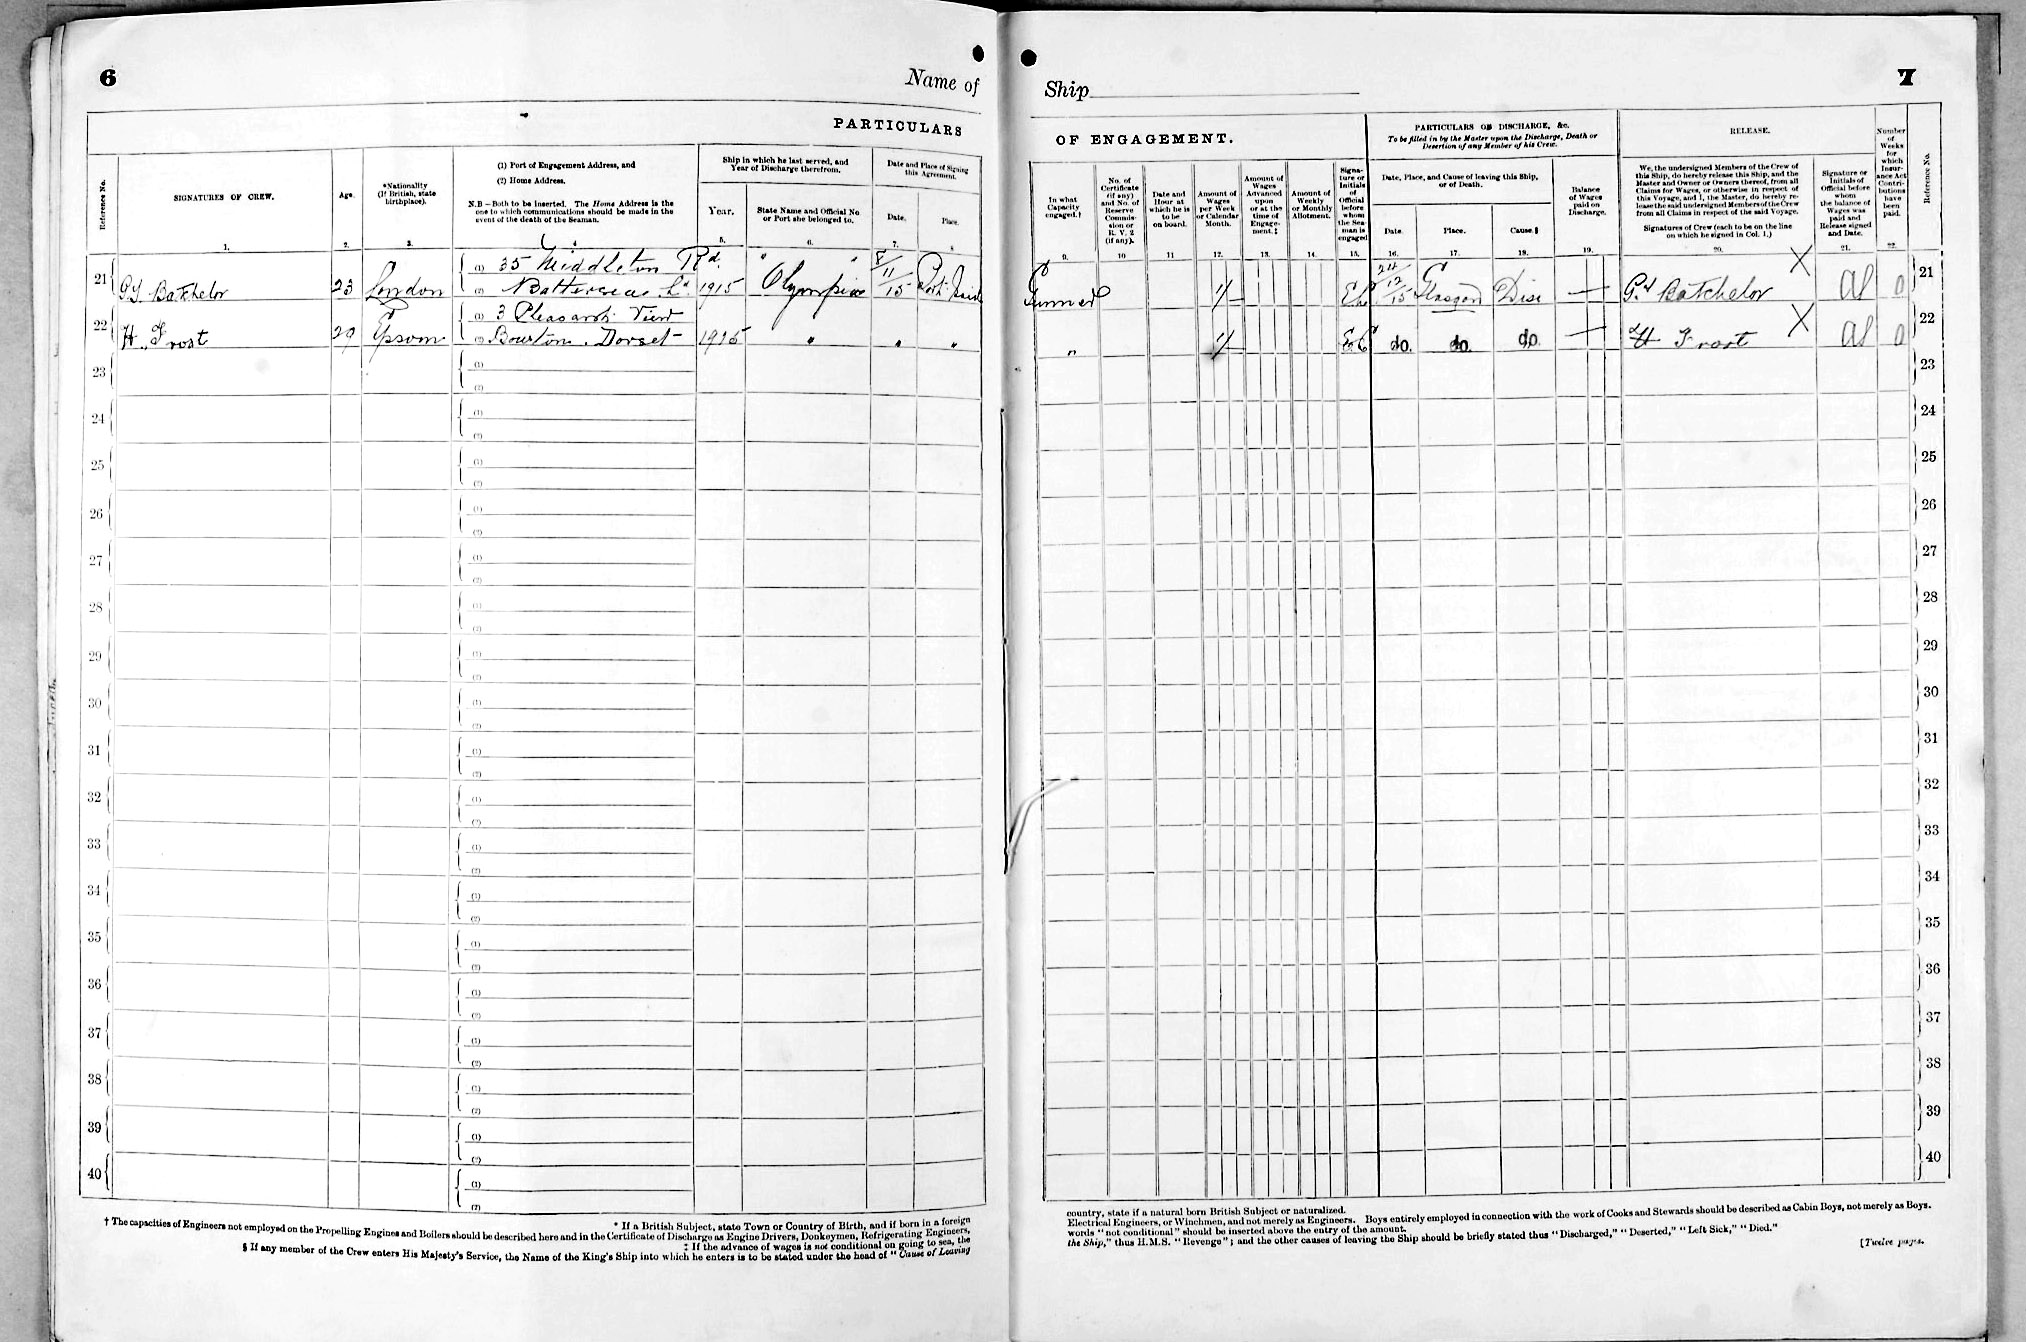 6
Name of
PARTICULARS
Reference No.
SIGNATURES OF CREW.
Age.
*Nationality
(If British, state
birthplace).
(1) Port of Engagement Address, and
(2) Home Address.
N.B—Both to be inserted. The Home Address is the
one to which communications should be made in the
event of the death of the Seaman.
Ship in which he last served, and
Year of Discharge therefrom.
Year.
State Name and Official No
or Port she belonged to.
Date and Place of Signing
this Agreement.
Date.
Place.
1.
2.
3.
4
5.
6.
7.
8
21
Batchelor
23
London
(1) 35 Middleton Rd
(2) Battersea
1915
" Olympia "
8/11/15
Port Said
22
H. Frost
29
Epsom
(1) 3 Pleasant View
(2) Bourton. Dorset
1915
"
"
"
23
(1)
(2)
24
(1)
(2)
25
(1)
(2)
26
(1)
(2)
27
(1)
(2)
28
(1)
(2)
29
(1)
(2)
30
(1)
(2)
31
(1)
(2)
32
(1)
(2)
33
(1)
(2)
34
(1)
(2)
35
(1)
(2)
36
(1)
(2)
37
(1)
(2)
38
(1)
(2)
39
(1)
(2)
40
(1)
(2)
* If a British Subject, state Town or Country of Birth, and if born in a foreign
† The capacities of Engineers not employed on the Propelling Engines and Boilers should be described here and in the Certificate of Discharge as Engine Drivers, Donkeymen, Refrigerating Engineers,
‡ If the advance of wages is not conditional on going to sea, the
§ If any member of the Crew enters His Majesty's Service, the Name of the King's Ship into which he enters is to be stated under the head of "Cause of Leaving
Ship
7
OF ENGAGEMENT.
PARTICULARS OF DISCHARGE, &c.
To be filled in by the Master upon the Discharge, Death or
Desertion of any Member of his Crew.
RELEASE.
In what
Capacity
engaged.†
No. of
Certificate
(if any)
and No. of
Reserve
Commis-
sion or
R. V. 2
(if any).
Date and
Hour at
which he is
to be
on board.
Amount of
Wages
per Week
or Calendar
Month.
Amount of
Wages
Advanced
upon
or at the
time of
Engage-
ment.‡
Amount of
Weekly
or Monthly
Allotment.
Signa-
ture or
Initials
of
Official
before
whom
the Sea-
man is
engaged
Date, Place, and Cause of leaving this Ship,
or of Death.
Date.
Place.
Cause.§
Balance
of Wages
paid on
Discharge.
We, the undersigned Members of the Crew of
this Ship, do hereby release this Ship, and the
Master and Owner or Owners thereof, from all
Claims for Wages, or otherwise in respect of
this Voyage, and I, the Master, do hereby re-
lease the said undersigned Members of the Crew
from all Claims in respect of the said Voyage.
Signatures of Crew (each to be on the line
on which he signed in Col. 1.)
Signature or
Initials of
Official before
whom
the balance of
Wages was
paid and
Release signed
and Date.
Number
of
Weeks
for
which
Insur-
ance Act
Contri-
butions
have
been
paid.
Reference No.
9.
10
11
12.
13.
14.
15.
16.
17.
18.
19.
20.
21.
22.
Gunner
1/-
24/12/15
Glasgow
Disc
—
Batchelor
X
0
21
"
1/-
do.
do.
do.
—
H Frost
X
0
22
23
24
25
26
27
28
29
30
31
32
33
34
35
36
37
38
39
40
country, state if a natural born British Subject or naturalized.
Electrical Engineers, or Winchmen, and not merely as Engineers. Boys entirely employed in connection with the work of Cooks and Stewards should be described as Cabin Boys, not merely as Boys.
words "not conditional" should be inserted above the entry of the amount.
the Ship," thus H.M.S. "Revenge"; and the other causes of leaving the Ship should be briefly stated thus "Discharged," "Deserted," "Left Sick," "Died."
[Twelve pages.